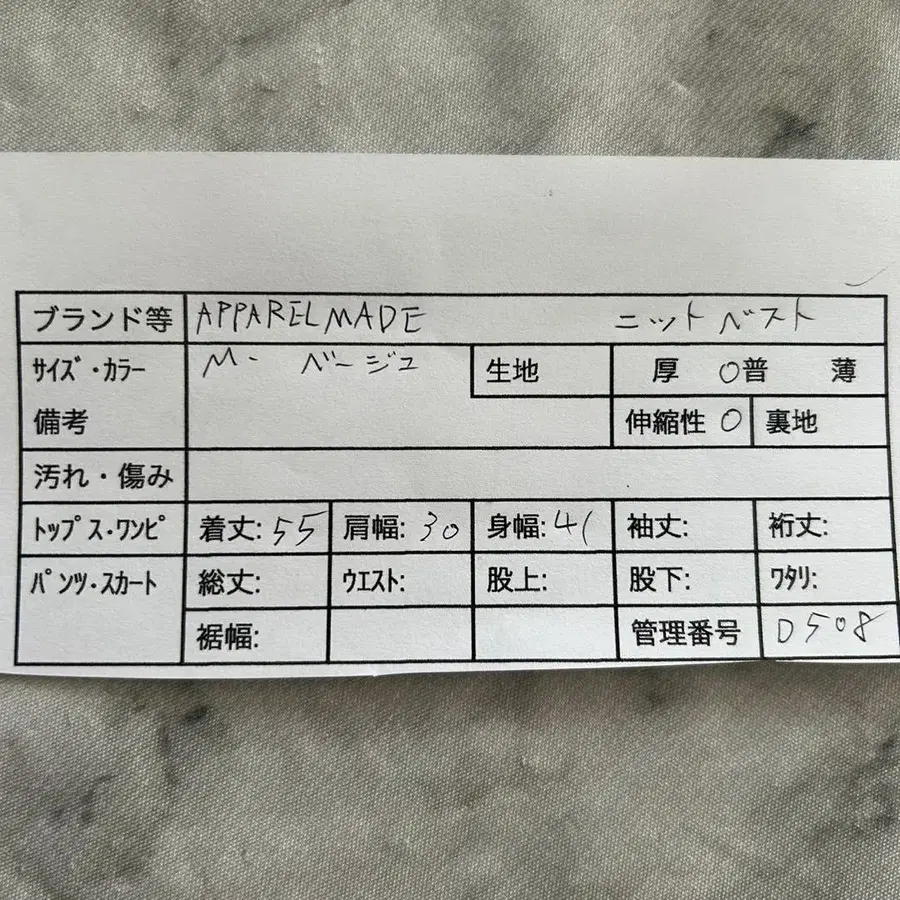 ブランド等 APPARELMADE ニットベスト
サイズ・カラー M- ベージュ 生地 厚 〇普 薄
備考 伸縮性 〇 裏地
汚れ・傷み
トップス・ワンピ 着丈: 55 肩幅: 30 身幅: 41 袖丈: 裄丈:
パンツ・スカート 総丈: ウエスト: 股上: 股下: ワタリ:
裾幅: 管理番号 D508